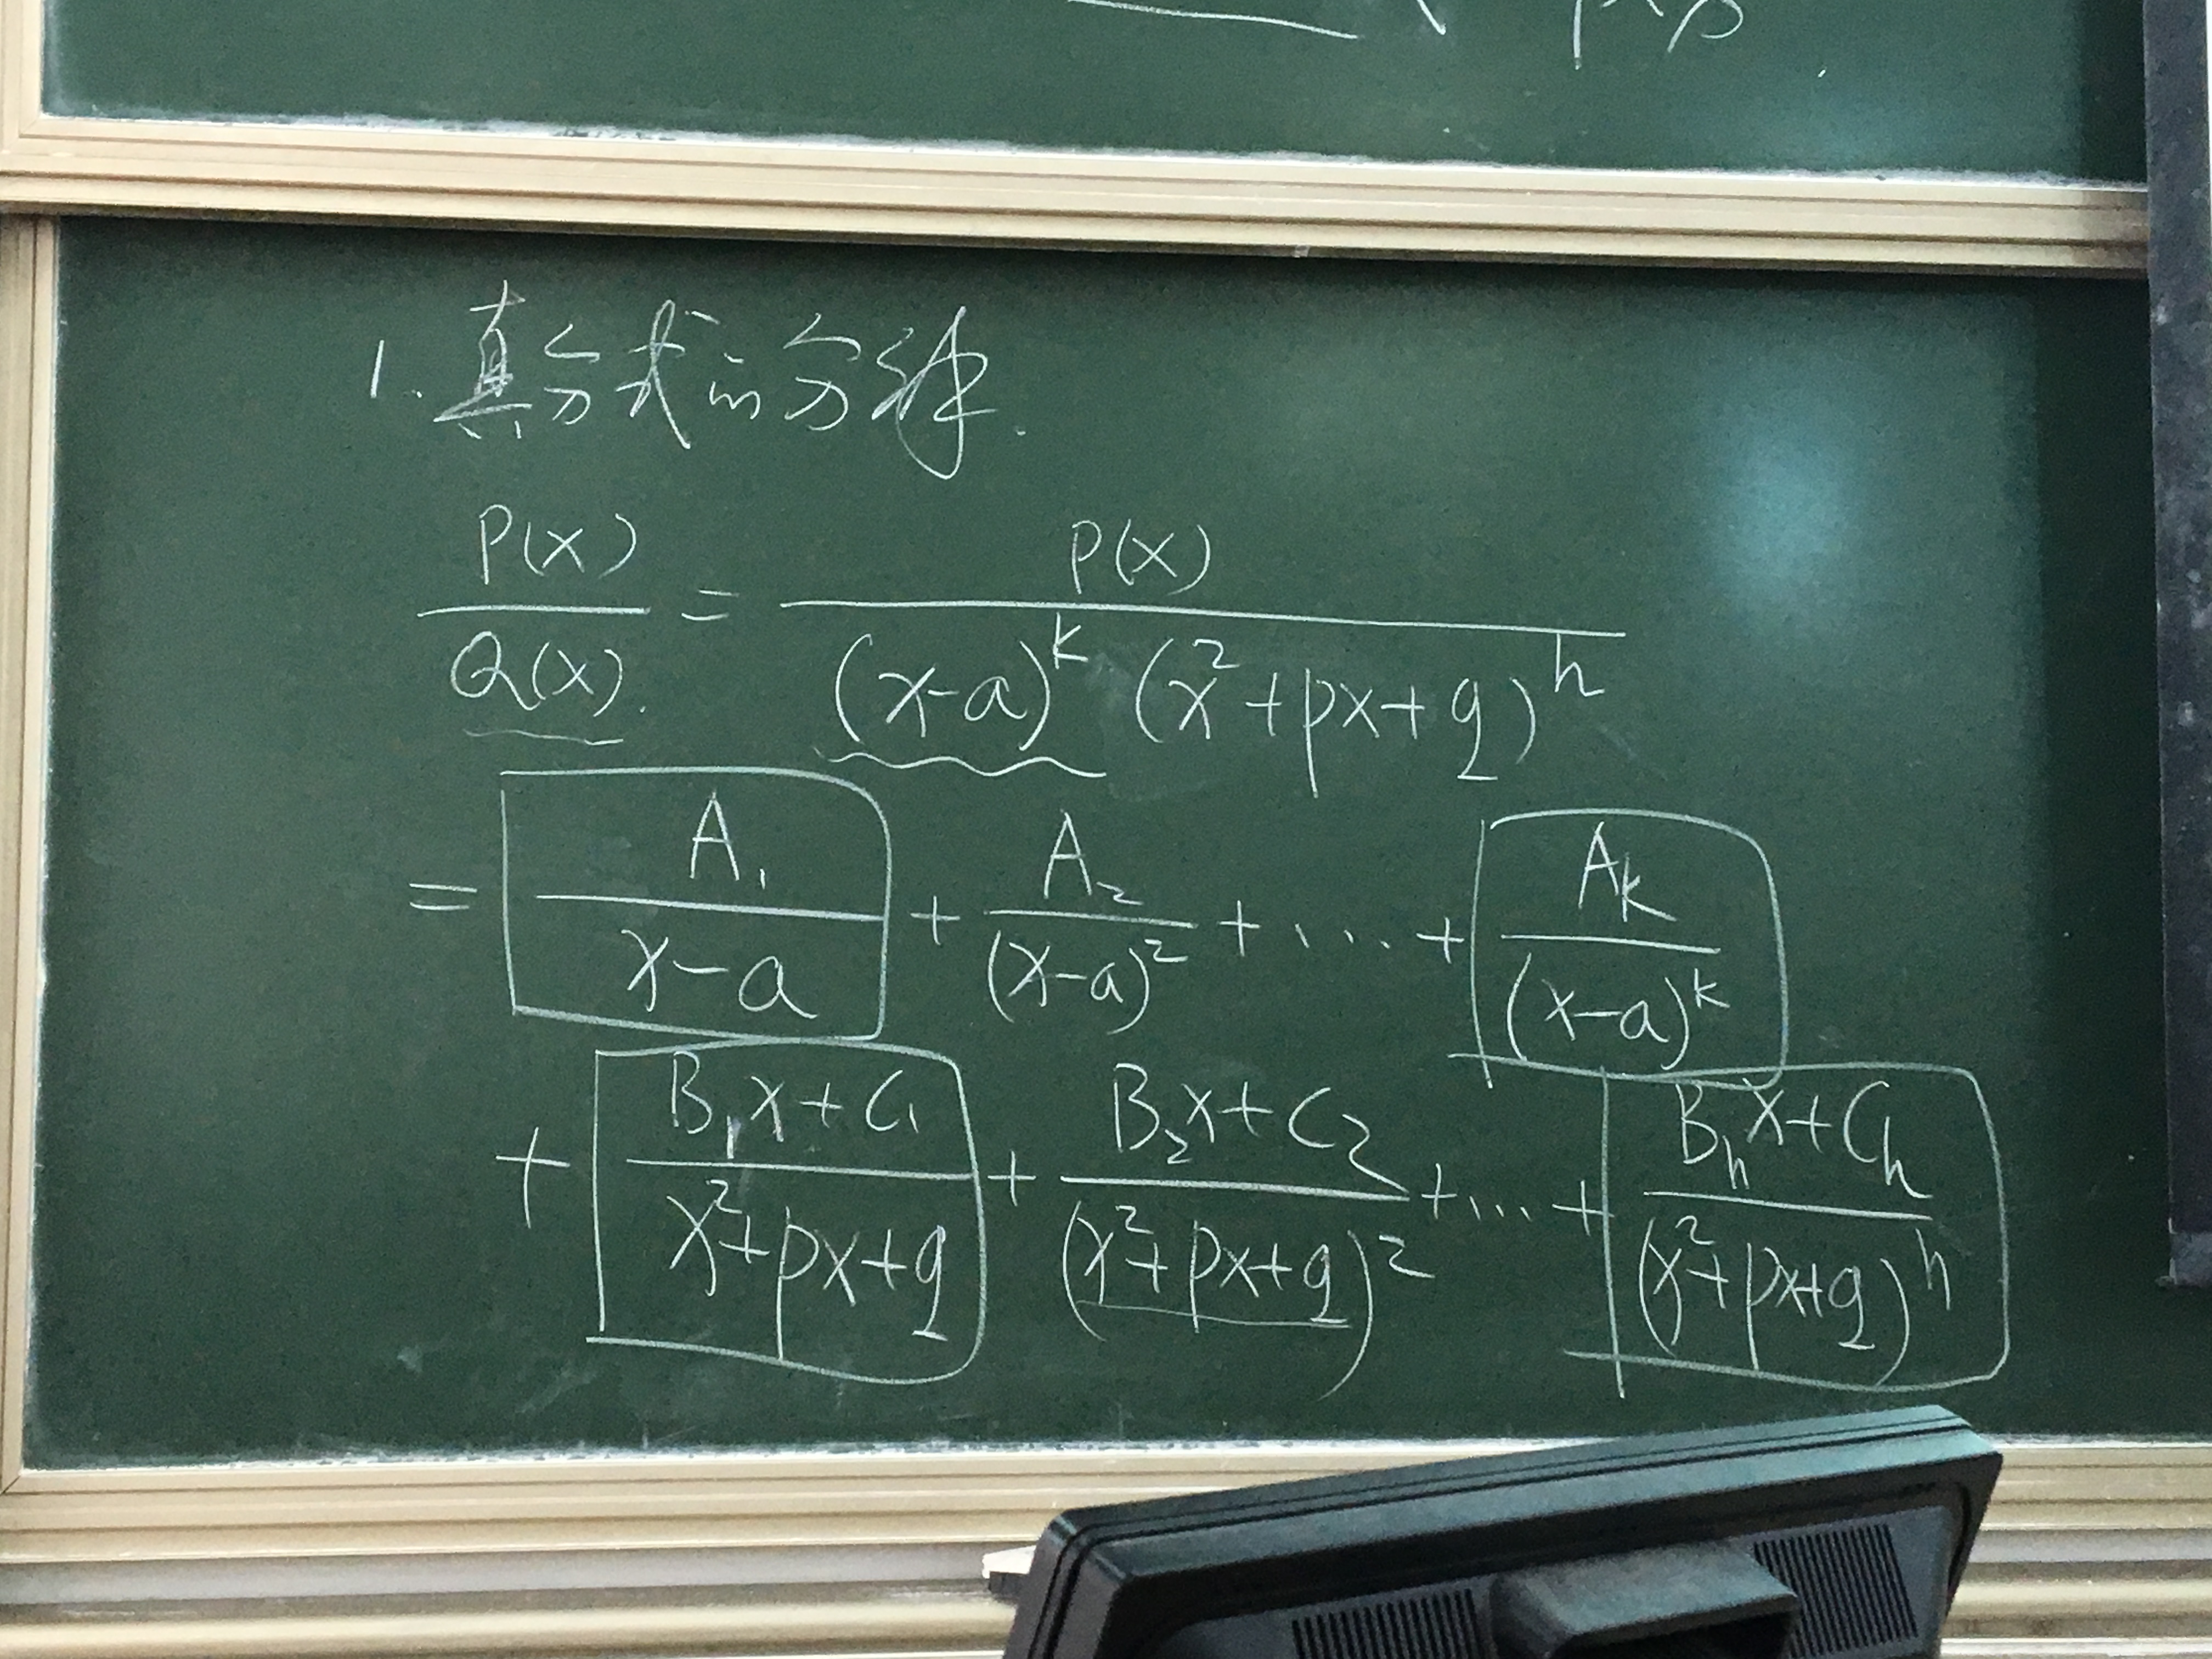 1. 真分式的分解.
P(x)/Q(x). = P(x)/((x-a)^k (x²+px+q)^h)
= A₁/(x-a) + A₂/(x-a)² + ... + A_k/(x-a)^k
+ (B₁x+C₁)/(x²+px+q) + (B₂x+C₂)/(x²+px+q)² + ... + (B_hx+C_h)/(x²+px+q)^h